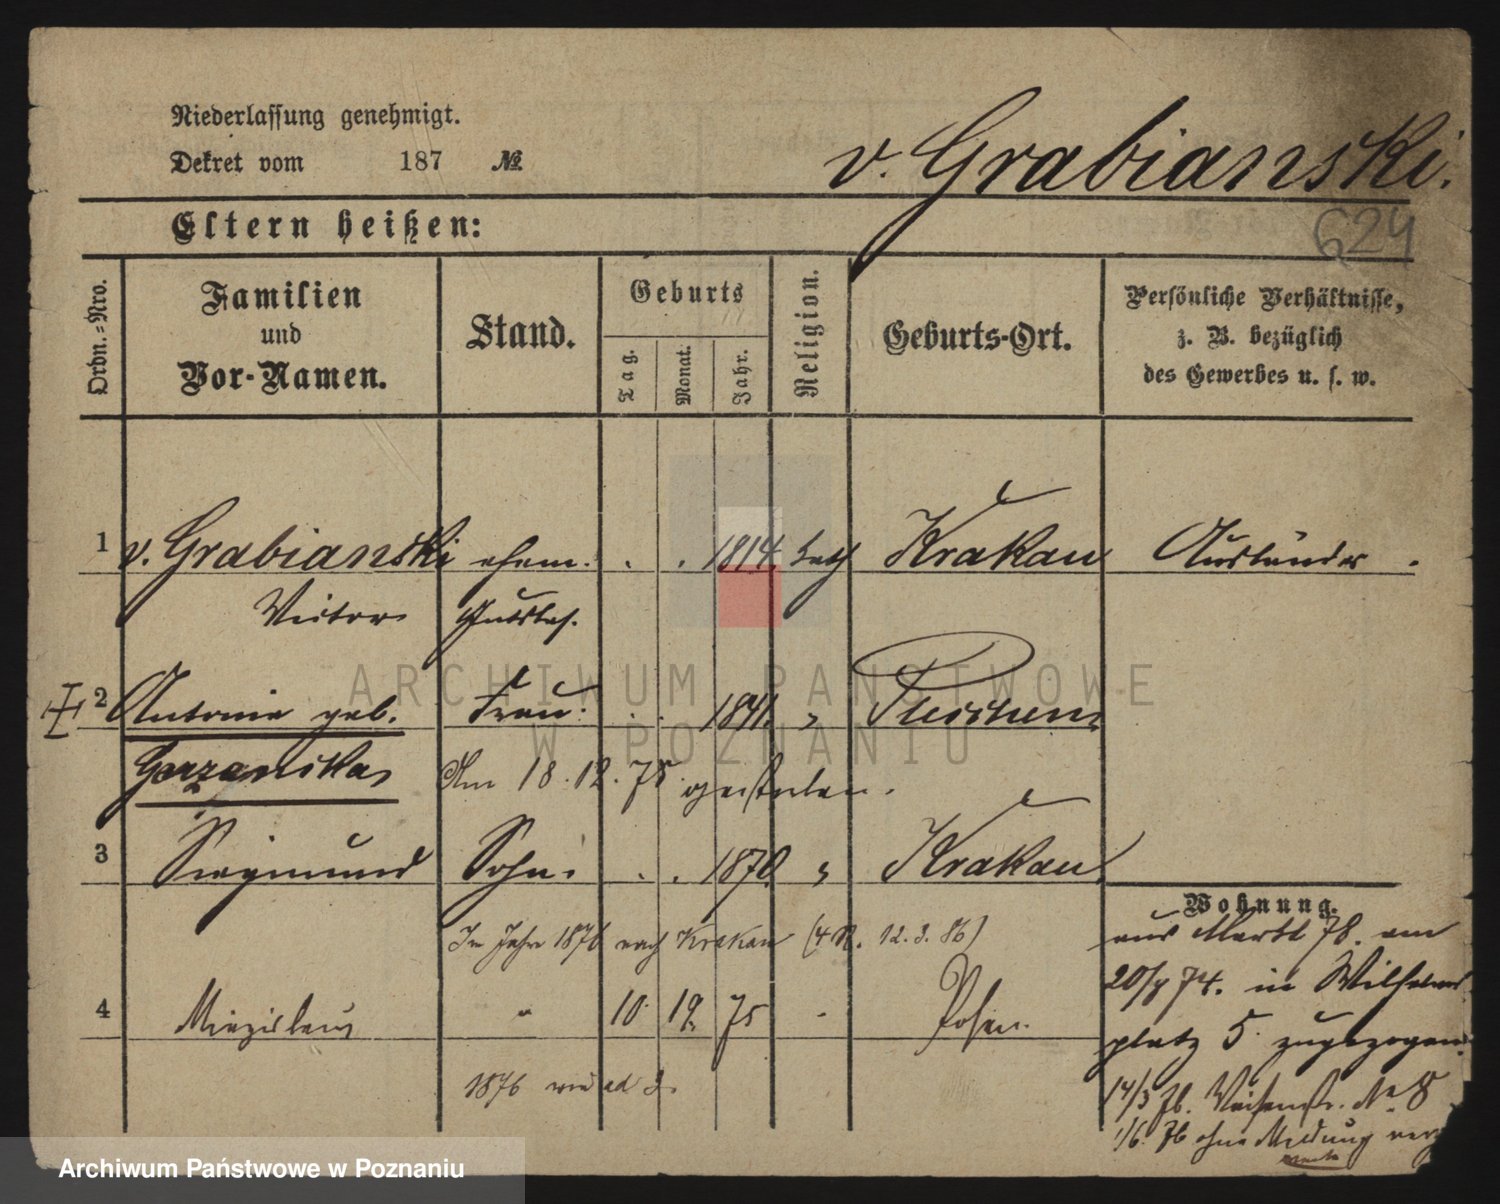 Niederlassung genehmigt.
Dekret vom 187 №
v. Grabianski.
Eltern heißen:
624
Ordn.-Nro.
Familien und Vor-Namen.
Stand.
Geburts
Tag.
Monat.
Jahr.
Religion.
Geburts-Ort.
Persönliche Verhältnisse,
z. B. bezüglich
des Gewerbes u. s. w.
1 v. Grabianski ehem. . . 1814. kath Krakau Ausländer.
Victor Gutsbes.
2 Antonie geb. Frau. . . 1841. " Pleschen.
Am 18.12.75. gestorben.
3 Siegmund Sohn. . . 1870. " Krakau.
Im Jahre 1876 nach Krakau (4 N. 12.3.86)
Wohnung.
aus Markt 78. am
74. in Wilhelms
platz 5. zugezogen.
4 Miezislaus " 10. 12. 75 - Posen.
1876 wie ad 3.
14/3 76. No 8
1/6. 76 ohne Meldung
ARCHIWUM PAŃSTWOWE
W POZNANIU
Archiwum Państwowe w Poznaniu